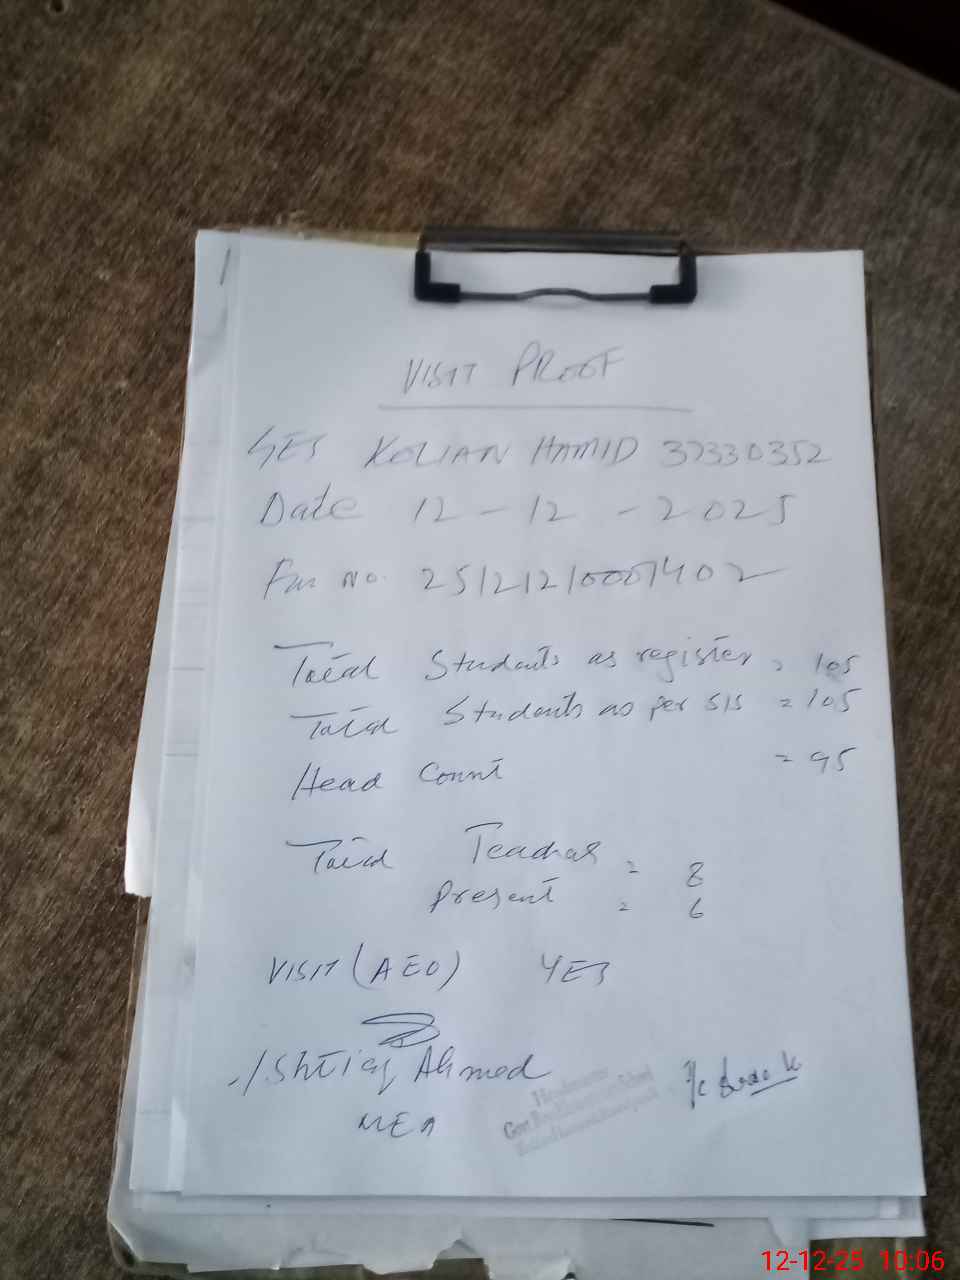 VISIT PROOF
GES KOLIAN HAMID 37330352
Date 12-12-2025
No. 25121210001402
Total Students as register = 105
Total Students as per SIS = 105
Head Count = 95
Total Teachers = 8
Present = 6
VISIT (AEO) YES
Ishtiaq Ahmed
MEA
Headmaster
Govt
School
12-12-25 10:06